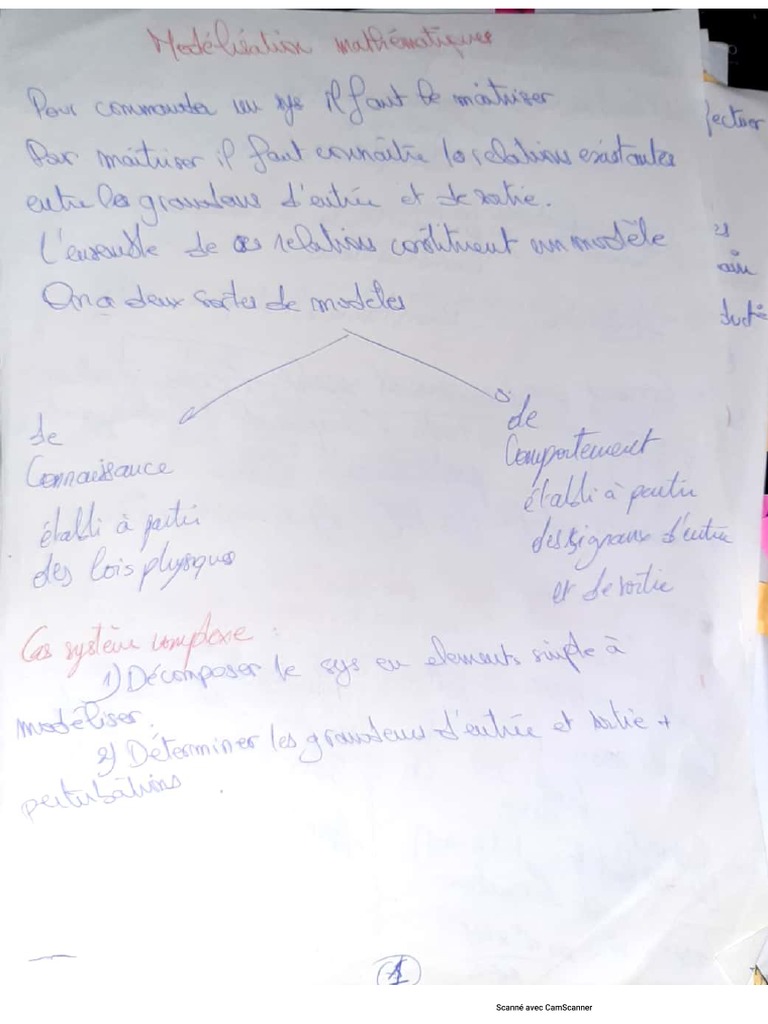 Modélisation mathématiques
Pour commander un sys il faut le maîtriser
Pour maîtriser il faut connaître les relations existantes
entre les grandeurs d'entrée et de sortie.
L'ensemble de ces relations constituent un modèle
On a deux sortes de modèles
de
Connaissance
établi à partir
des lois physiques
de
Comportement
établi à partir
des signaux d'entrée
et de sortie
Cas système complexe :
1) Décomposer le sys en elements simple à
modéliser.
2) Déterminer les grandeurs d'entrée et sortie +
perturbations.
1
Scanné avec CamScanner